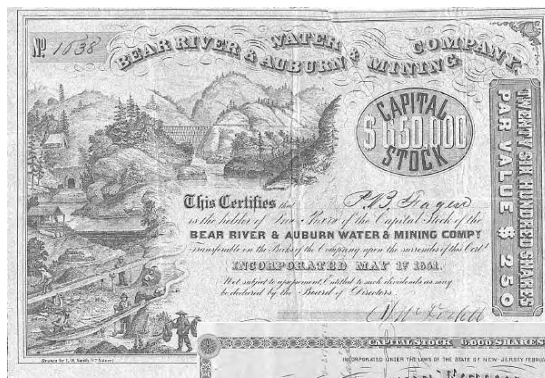 Nº 1638
BEAR RIVER & AUBURN WATER & MINING COMPANY.
CAPITAL
$650,000
STOCK
TWENTY SIX HUNDRED SHARES
PAR VALUE $250
This Certifies that
is the holder of One Share of the Capital Stock of the
BEAR RIVER & AUBURN WATER & MINING COMPY
Transferable on the Books of the Company upon the surrender of this Cert.
INCORPORATED MAY 1st 1851.
Not subject to assessment. Entitled to such dividends as may
be declared by the Board of Directors.
CAPITAL STOCK 6,000 SHARES
INCORPORATED UNDER THE LAWS OF THE STATE OF NEW JERSEY